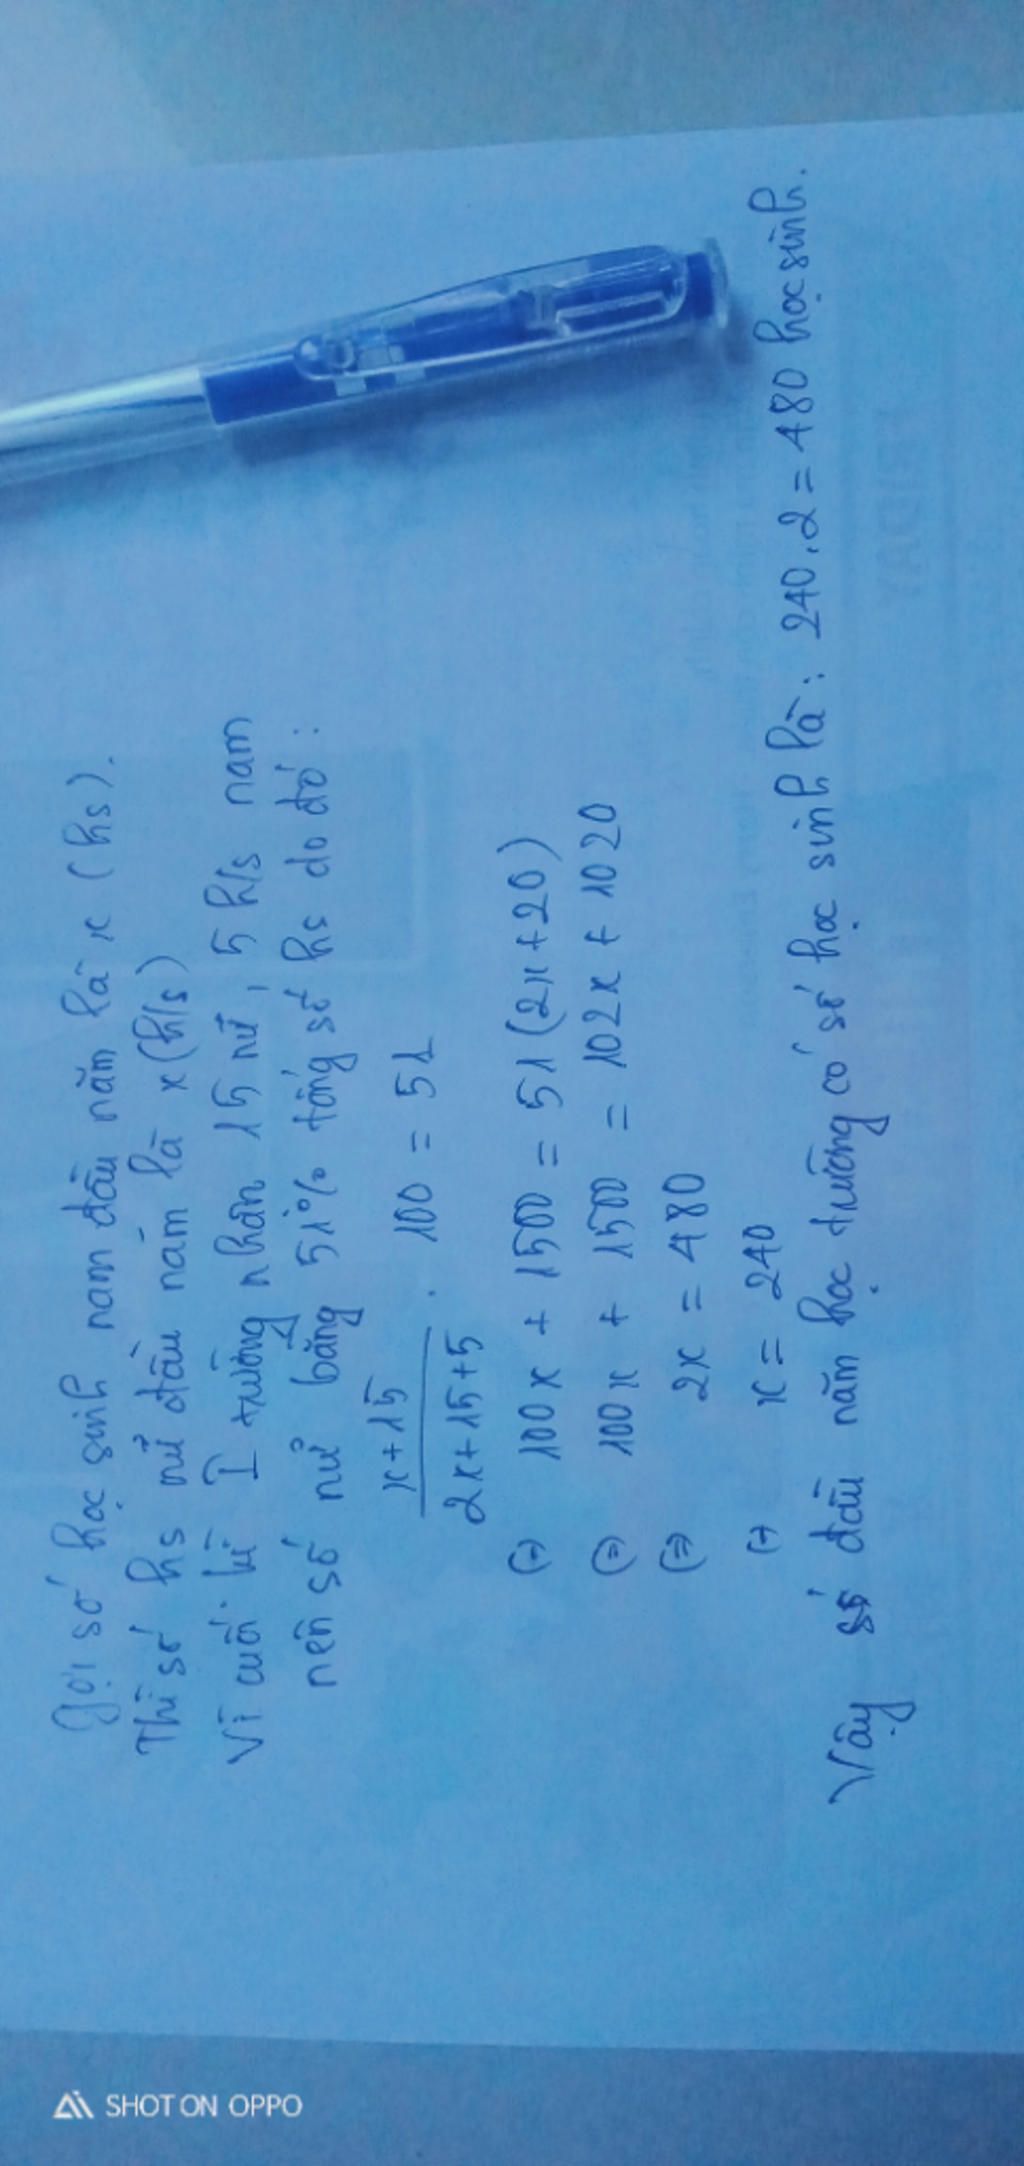 Gọi số học sinh nam đầu năm là x (hs).
Thì số hs nữ đầu năm là x (h/s)
Vì cuối kì I trường nhận 15 nữ, 5 h/s nam
nên số nữ bằng 51% tổng số hs do đó:
x+15 / 2x+15+5 . 100 = 51
(=) 100x + 1500 = 51 (2x+20)
(=) 100x + 1500 = 102x + 1020
(=) 2x = 480
(=) x = 240
Vậy số đầu năm học trường có số học sinh là: 240.2 = 480 học sinh.
SHOT ON OPPO